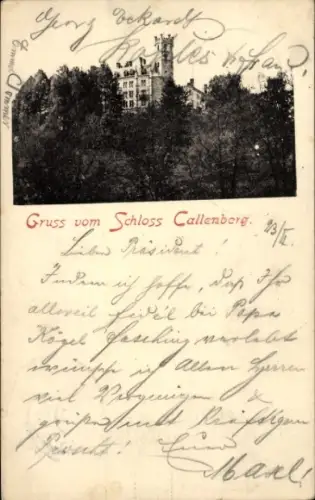 Georg Eckardt
Gruss vom Schloss Callenberg.
23/II.
Lieber Präsident!
Indem ich hoffe, daß Ihr
alleweil fidel bei Papa
Kögel Fasching verlebt
wünsche ich Allen Herren
viel Vergnügen &
grüße mit kräftigem
Prosit! Euer
Maxl!